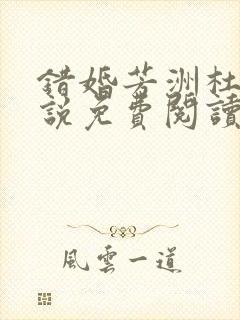 錯婚芳洲杜
說免費閱讀
風雲一道